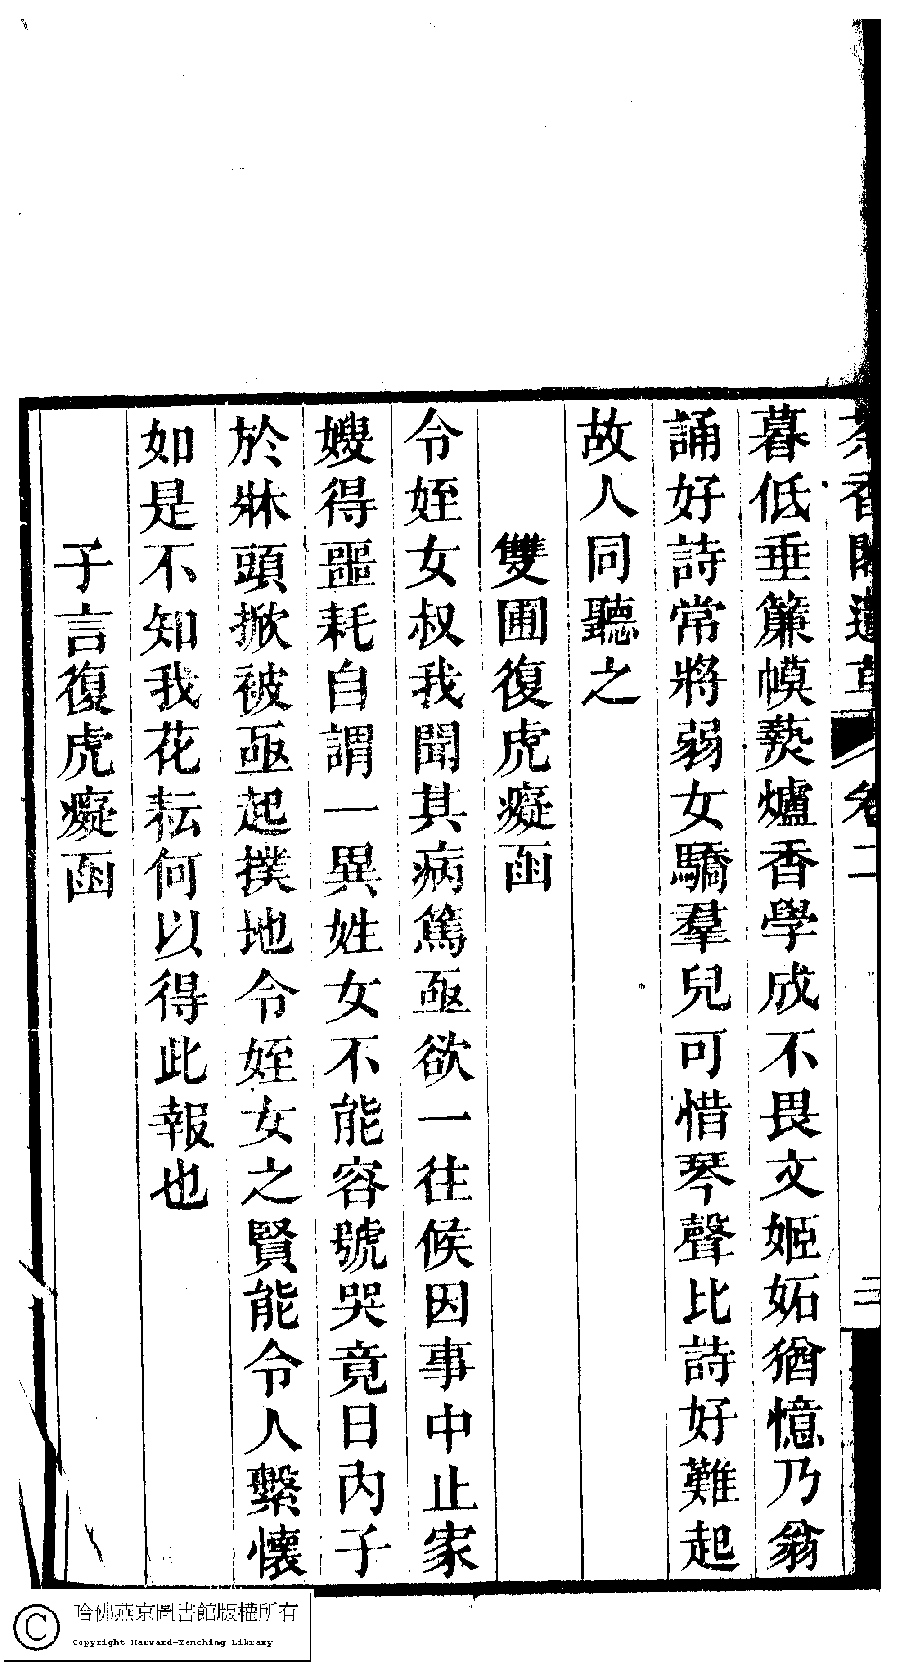 茶香閣遺草 卷二 二
暮低垂簾幙爇爐香學成不畏文姬妬猶憶乃翁
誦好詩常將弱女驕羣兒可惜琴聲比詩好難起
故人同聽之
雙圃復虎癡函
令姪女叔我聞其病篤亟欲一往候因事中止家
嫂得噩耗自謂一異姓女不能容號哭竟日內子
於牀頭掀被亟起撲地令姪女之賢能令人繫懷
如是不知我花耘何以得此報也
子言復虎癡函
哈佛燕京圖書館版權所有
Copyright Harvard-Yenching Library